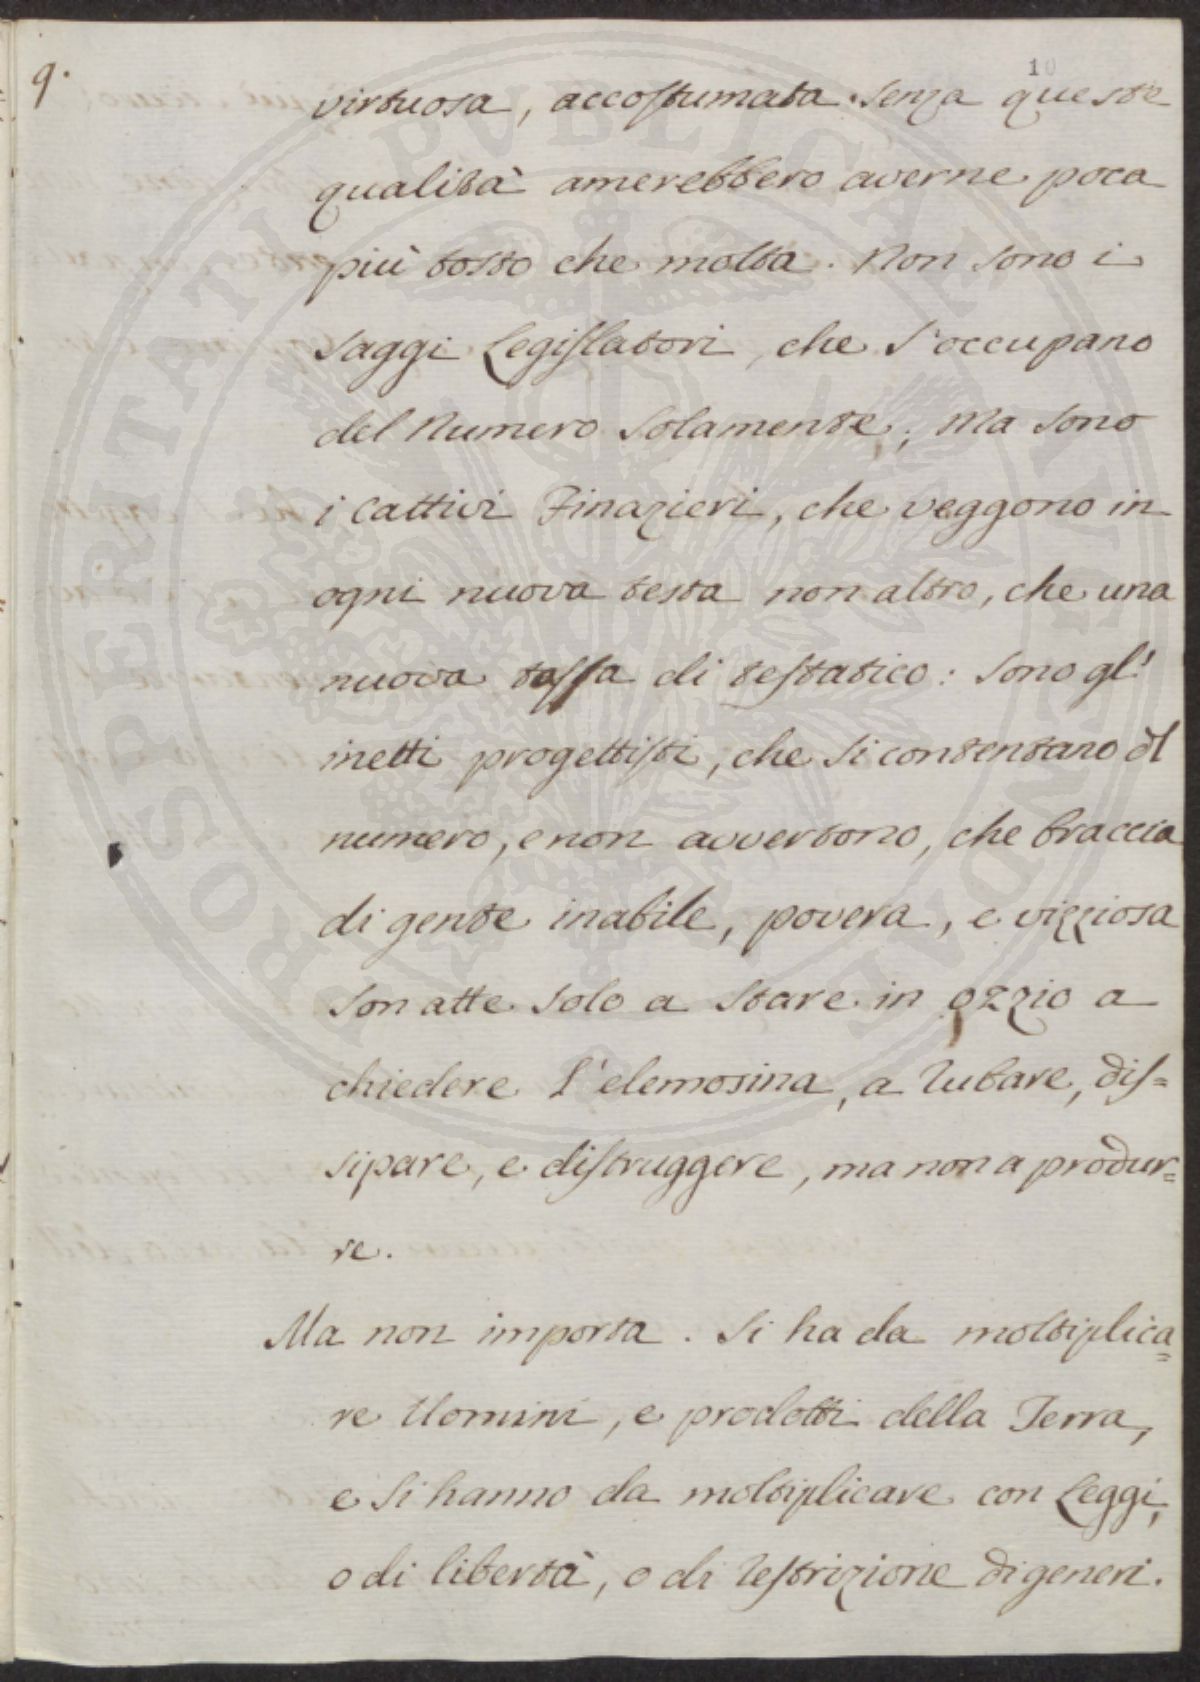 9.
10
virtuosa, accostumata. Senza queste
qualità amerebbero averne poca
più tosto che molta. Non sono i
Saggi Legislatori, che s'occupano
del Numero Solamente; Ma sono
i Cattivi Finazieri, che veggono in
ogni nuova testa non altro, che una
nuova tassa di testatico: sono gl'
inetti progettisti, che si contentano dl
numero, e non avvertono, che braccia
di gente inabile, povera, e vizziosa
son atte solo a stare in ozzio a
chiedere l'elemosina, a rubare, dis=
sipare, e distruggere, ma non a produr=
re.
Ma non importa. Si ha da moltiplica=
re Uomini, e prodotti della Terra,
e si hanno da moltiplicare con Leggi,
o di libertà, o di restrizione di generi.
PROSPERITATI PVBLICAE AVGENDAE